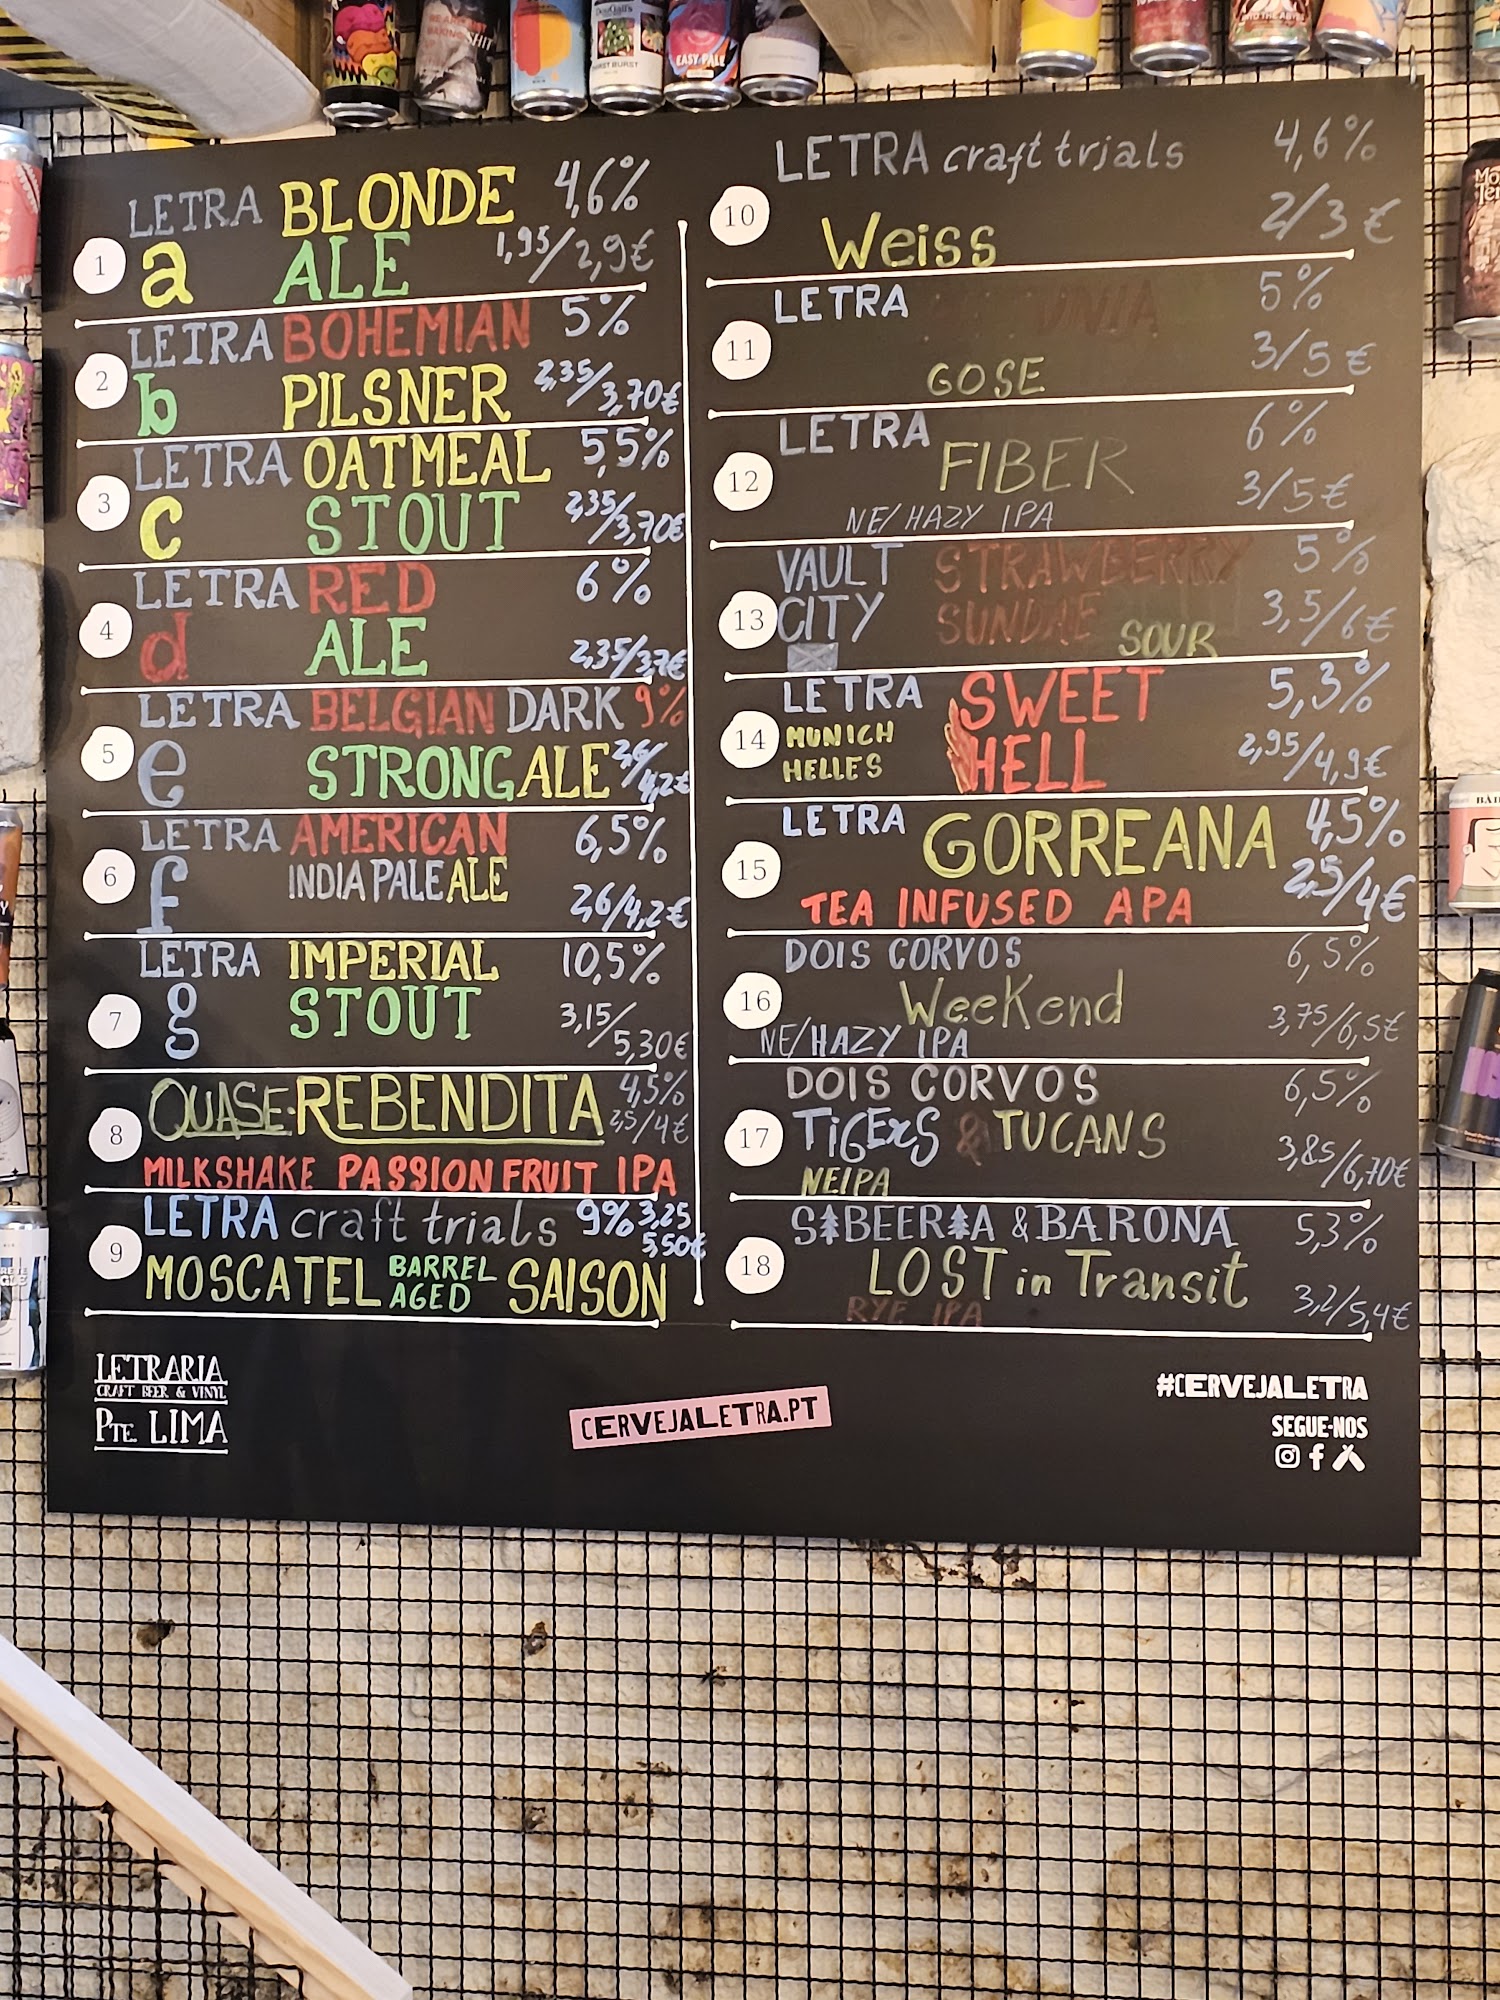 1
LETRA BLONDE 4,6%
a ALE 1,95/2,9€
2
LETRA BOHEMIAN 5%
b PILSNER 2,35/3,70€
3
LETRA OATMEAL 5,5%
c STOUT 2,35/3,70€
4
LETRA RED 6%
d ALE 2,35/3,7€
5
LETRA BELGIAN DARK 9%
e STRONG ALE 2,6/4,2€
6
LETRA AMERICAN 6,5%
f INDIA PALE ALE
2,6/4,2€
7
LETRA IMPERIAL 10,5%
g STOUT 3,15/5,30€
8
QUASE·REBENDITA 4,5%
2,5/4€
MILKSHAKE PASSION FRUIT IPA
9
LETRA craft trials 9% 3,25
5,50€
MOSCATEL BARREL AGED SAISON
10
LETRA craft trials 4,6%
Weiss 2/3€
11
LETRA 5%
GOSE 3/5€
12
LETRA FIBER 6%
NE/HAZY IPA 3/5€
13
VAULT STRAWBERRY 5%
CITY SUNDAE SOUR 3,5/6€
14
LETRA SWEET 5,3%
MUNICH HELLES HELL 2,95/4,9€
15
LETRA GORREANA 4,5%
TEA INFUSED APA 2,5/4€
16
DOIS CORVOS 6,5%
Weekend 3,75/6,5€
NE/HAZY IPA
17
DOIS CORVOS 6,5%
TiGERS & TUCANS 3,85/6,70€
NEIPA
18
SBEERA & BARONA 5,3%
LOST in Transit 3,2/5,4€
RYE IPA
LETRARIA
CRAFT BEER & VINYL
PTE. LIMA
CERVEJALETRA.PT
#CERVEJALETRA
SEGUE-NOS
EASY PALE